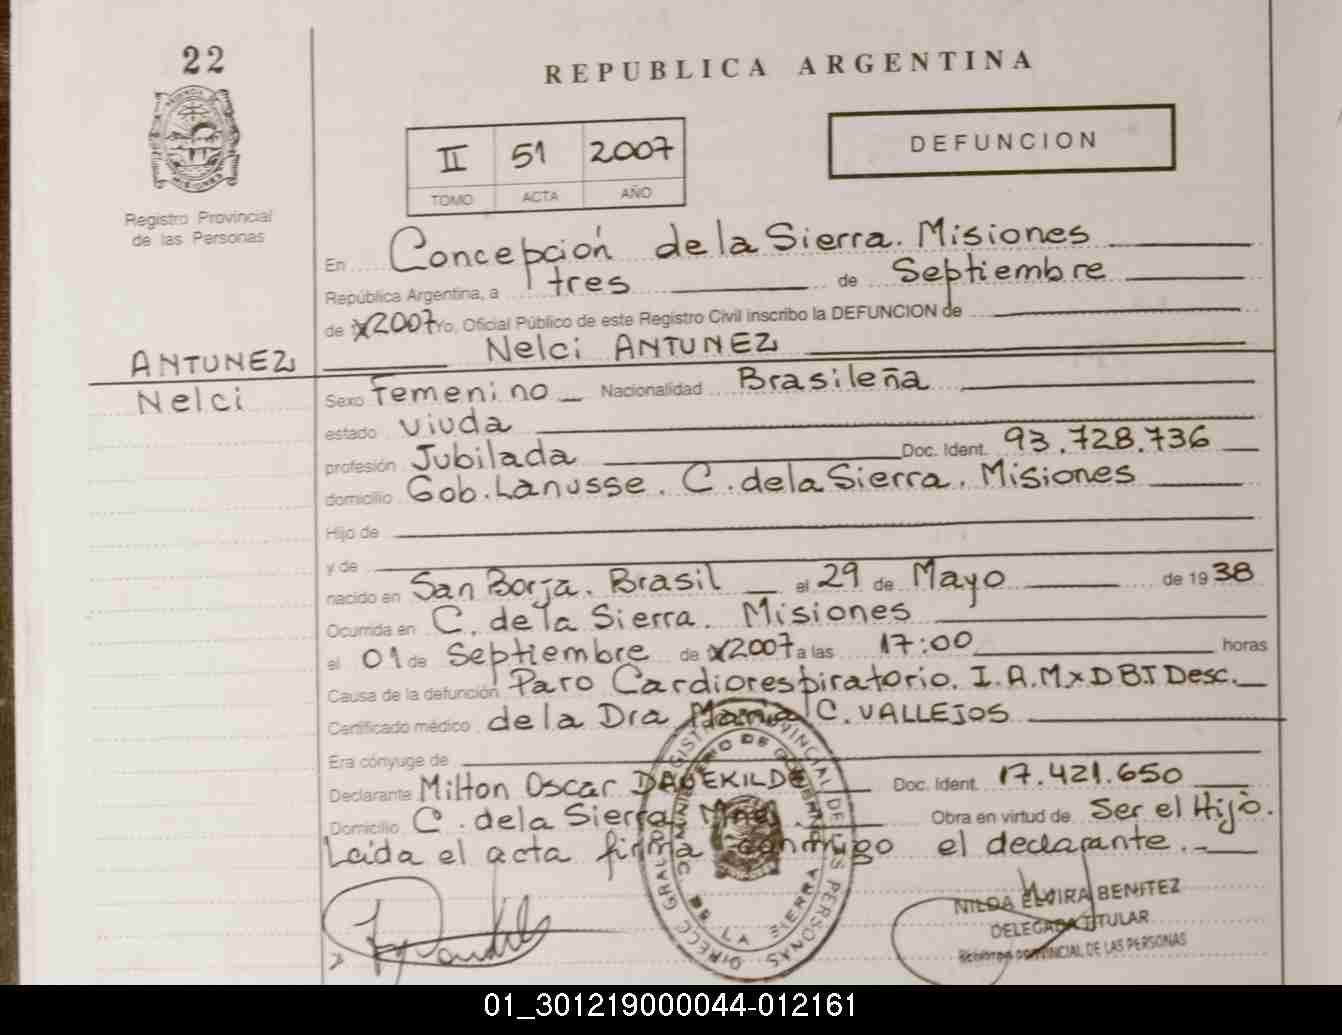 22
REPUBLICA ARGENTINA
II 51 2007
TOMO ACTA AÑO
DEFUNCION
Registro Provincial
de las Personas
En Concepción de la Sierra. Misiones
República Argentina, a tres de Septiembre
de 2007 Yo, Oficial Público de este Registro Civil inscribo la DEFUNCION de
ANTUNEZ Nelci ANTUNEZ
Nelci
Sexo Femenino Nacionalidad Brasileña
estado viuda
profesión Jubilada Doc. Ident. 93.728.736
domicilio Gob. Lanusse. C. de la Sierra. Misiones
Hijo de
y de
nacido en San Borja. Brasil el 29 de Mayo de 1938
Ocurrida en C. de la Sierra. Misiones
el 01 de Septiembre de 2007 a las 17:00 horas
Causa de la defunción Paro Cardiorespiratorio. I.A.M x DBT Desc.
Certificado médico de la Dra Maria C. VALLEJOS
Era cónyuge de
Declarante Milton Oscar Doc. Ident. 17.421.650
Domicilio C. de la Sierra Mnes. Obra en virtud de Ser el Hijo.
Leida el acta firma conmigo el declarante.
NILDA ELVIRA BENITEZ
DELEGADA TITULAR
PROVINCIAL DE LAS PERSONAS
01_301219000044-012161